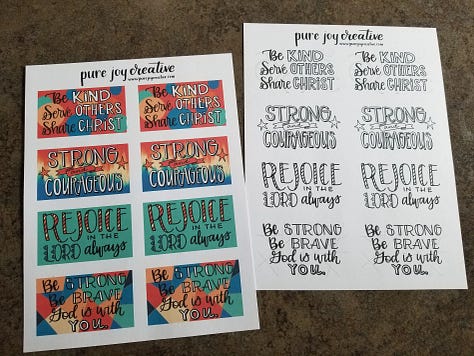 pure joy creative
www.purejoycreative.com
Be KIND
Serve OTHERS
Share CHRIST
Be KIND
Serve OTHERS
Share CHRIST
STRONG
and
COURAGEOUS
STRONG
and
COURAGEOUS
REJOICE
IN THE
LORD always
REJOICE
IN THE
LORD always
Be STRONG
Be BRAVE
God is with
YOU.
Be STRONG
Be BRAVE
God is with
YOU.
pure joy creative
www.purejoycreative.com
Be KIND
Serve OTHERS
Share CHRIST
Be KIND
Serve OTHERS
Share CHRIST
STRONG
and
COURAGEOUS
STRONG
and
COURAGEOUS
REJOICE
IN THE
LORD always
REJOICE
IN THE
LORD always
Be STRONG
Be BRAVE
God is with
YOU.
Be STRONG
Be BRAVE
God is with
YOU.